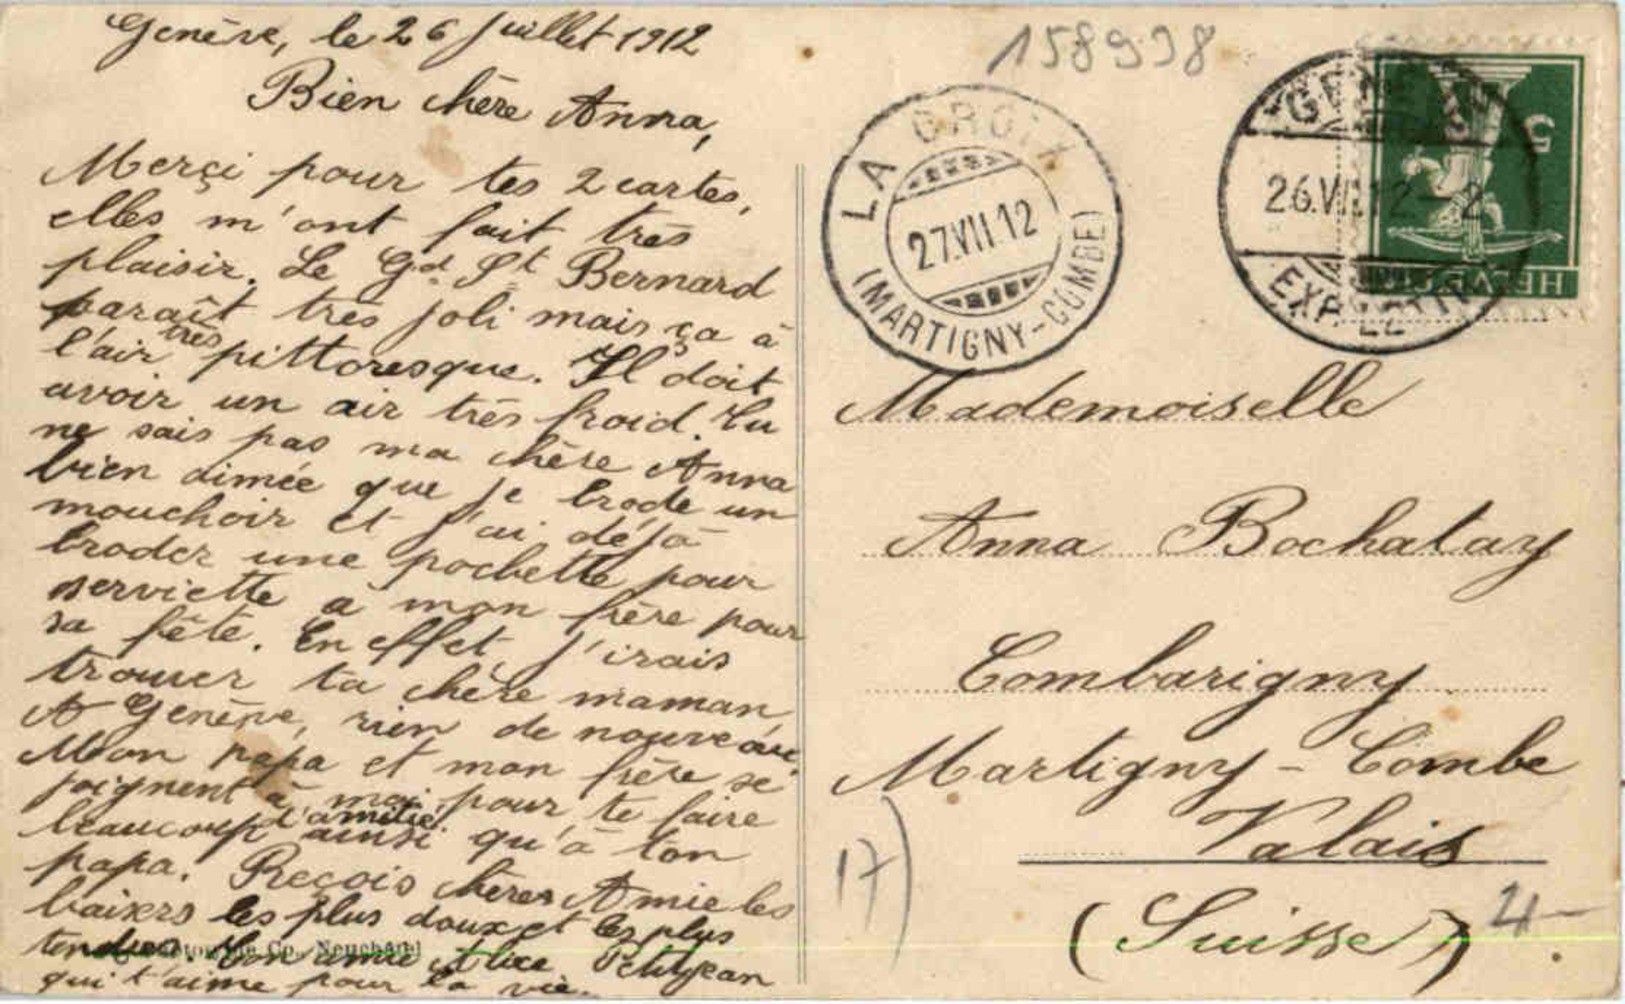 Genève, le 26 Juillet 1912
Bien chère Anna,
Merçi pour tes 2 cartes,
elles m'ont fait très
plaisir. Le Gd St Bernard
paraît très joli mais ça à
l'air très pittoresque. Il doit
avoir un air très froid. Tu
ne sais pas ma chère Anna
bien aimée que je brode un
mouchoir et j'ai déjà
broder une pochette pour
serviette a mon frère pour
sa fête. En effet j'irais
trouver ta chère maman,
A Genève, rien de nouveau
Mon papa et mon frère se
joignent à moi pour te faire
beaucoup d'amitié ainsi qu'à ton
papa. Reçois chères Amie les
baisers les plus doux et les plus
tendres. Ton amie Alice Petitjean
qui t'aime pour la vie.
Co., Neuchâtel
158998
LA CROIX
27.VII.12
(MARTIGNY-COMBE)
GENÈVE
26.VII.12-2
EXP. LETTR.
5
HELVETIA
Mademoiselle
Anna Bochatay
Combarigny
Martigny-Combe
Valais
(Suisse)
17)
4-